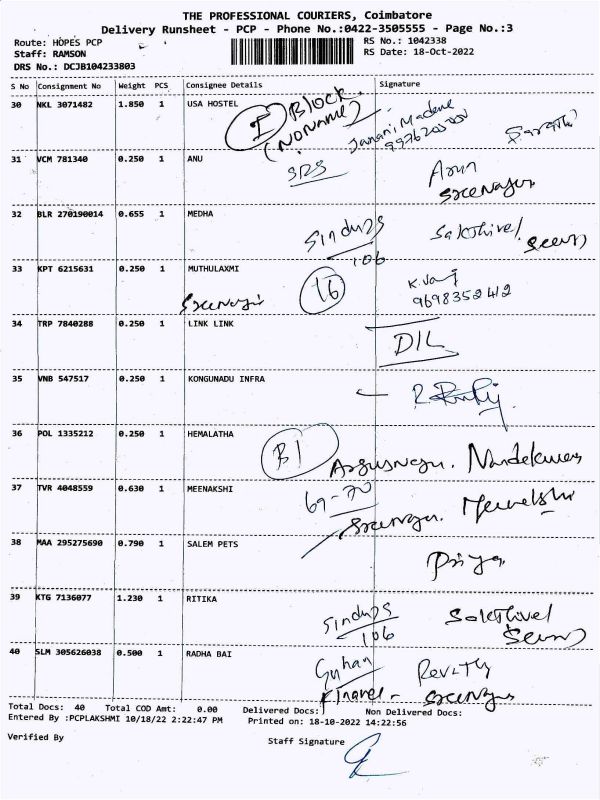 THE PROFESSIONAL COURIERS, Coimbatore
Delivery Runsheet - PCP - Phone No.:0422-3505555 - Page No.:3
Route: HOPES PCP
Staff: RAMSON
DRS No.: DCJB104233803
RS No.: 1042338
RS Date: 18-Oct-2022
S No Consignment No Weight PCS Consignee Details Signature
30 NKL 3071482 1.850 1 USA HOSTEL
I Block
(NONAME)
31 VCM 781340 0.250 1 ANU
SRS
Arun
32 BLR 270190014 0.655 1 MEDHA
106
Sakthivel
33 KPT 6215631 0.250 1 MUTHULAXMI
16
9698352412
34 TRP 7840288 0.250 1 LINK LINK
35 VNB 547517 0.250 1 KONGUNADU INFRA
36 POL 1335212 0.250 1 HEMALATHA
B1
37 TVR 4048559 0.630 1 MEENAKSHI
69-70
38 MAA 295275690 0.790 1 SALEM PETS
Priya
39 KTG 7136077 1.230 1 RITIKA
106
Sakthivel
40 SLM 305626038 0.500 1 RADHA BAI
Total Docs: 40 Total COD Amt: 0.00 Delivered Docs: Non Delivered Docs:
Entered By :PCPLAKSHMI 10/18/22 2:22:47 PM Printed on: 18-10-2022 14:22:56
Verified By
Staff Signature